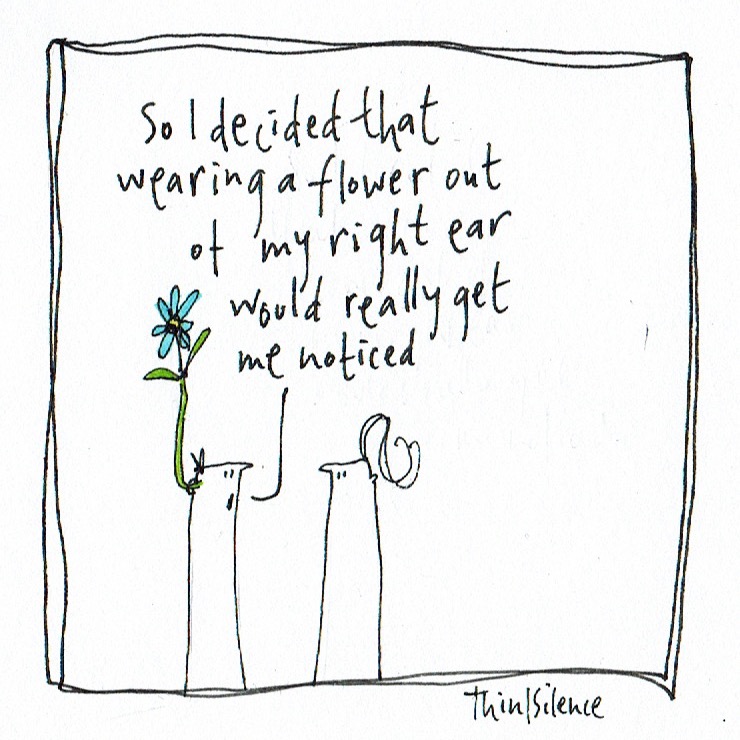 So I decided that
wearing a flower out
of my right ear
would really get
me noticed
Thin|Silence